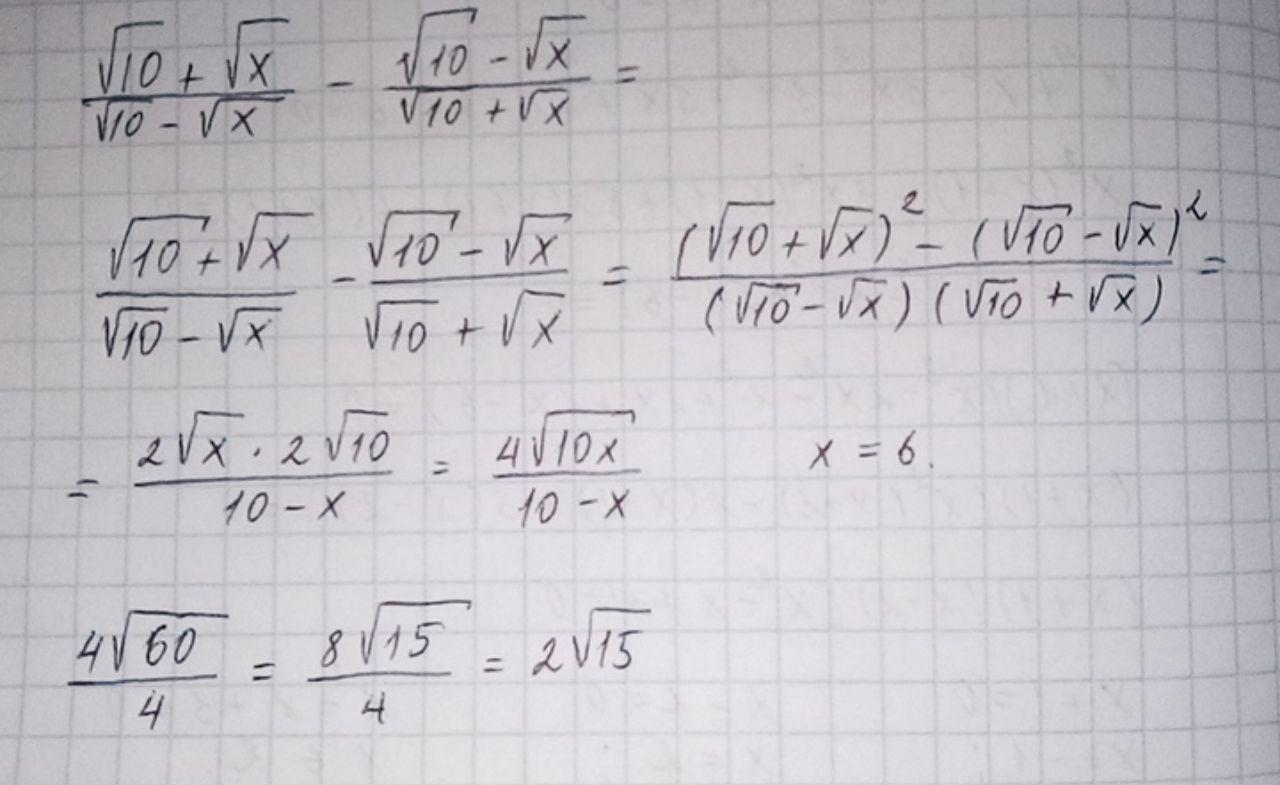 (√10 + √x)/(√10 - √x) - (√10 - √x)/(√10 + √x) =
(√10 + √x)/(√10 - √x) - (√10 - √x)/(√10 + √x) = ((√10 + √x)² - (√10 - √x)²)/((√10 - √x)(√10 + √x)) =
= (2√x · 2√10)/(10 - x) = (4√(10x))/(10 - x) x = 6.
(4√60)/4 = (8√15)/4 = 2√15